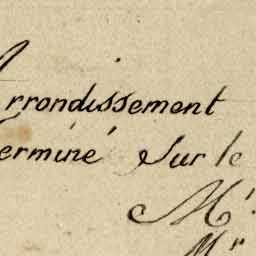 Arrondissement
erminé Sur le
M.
Mr